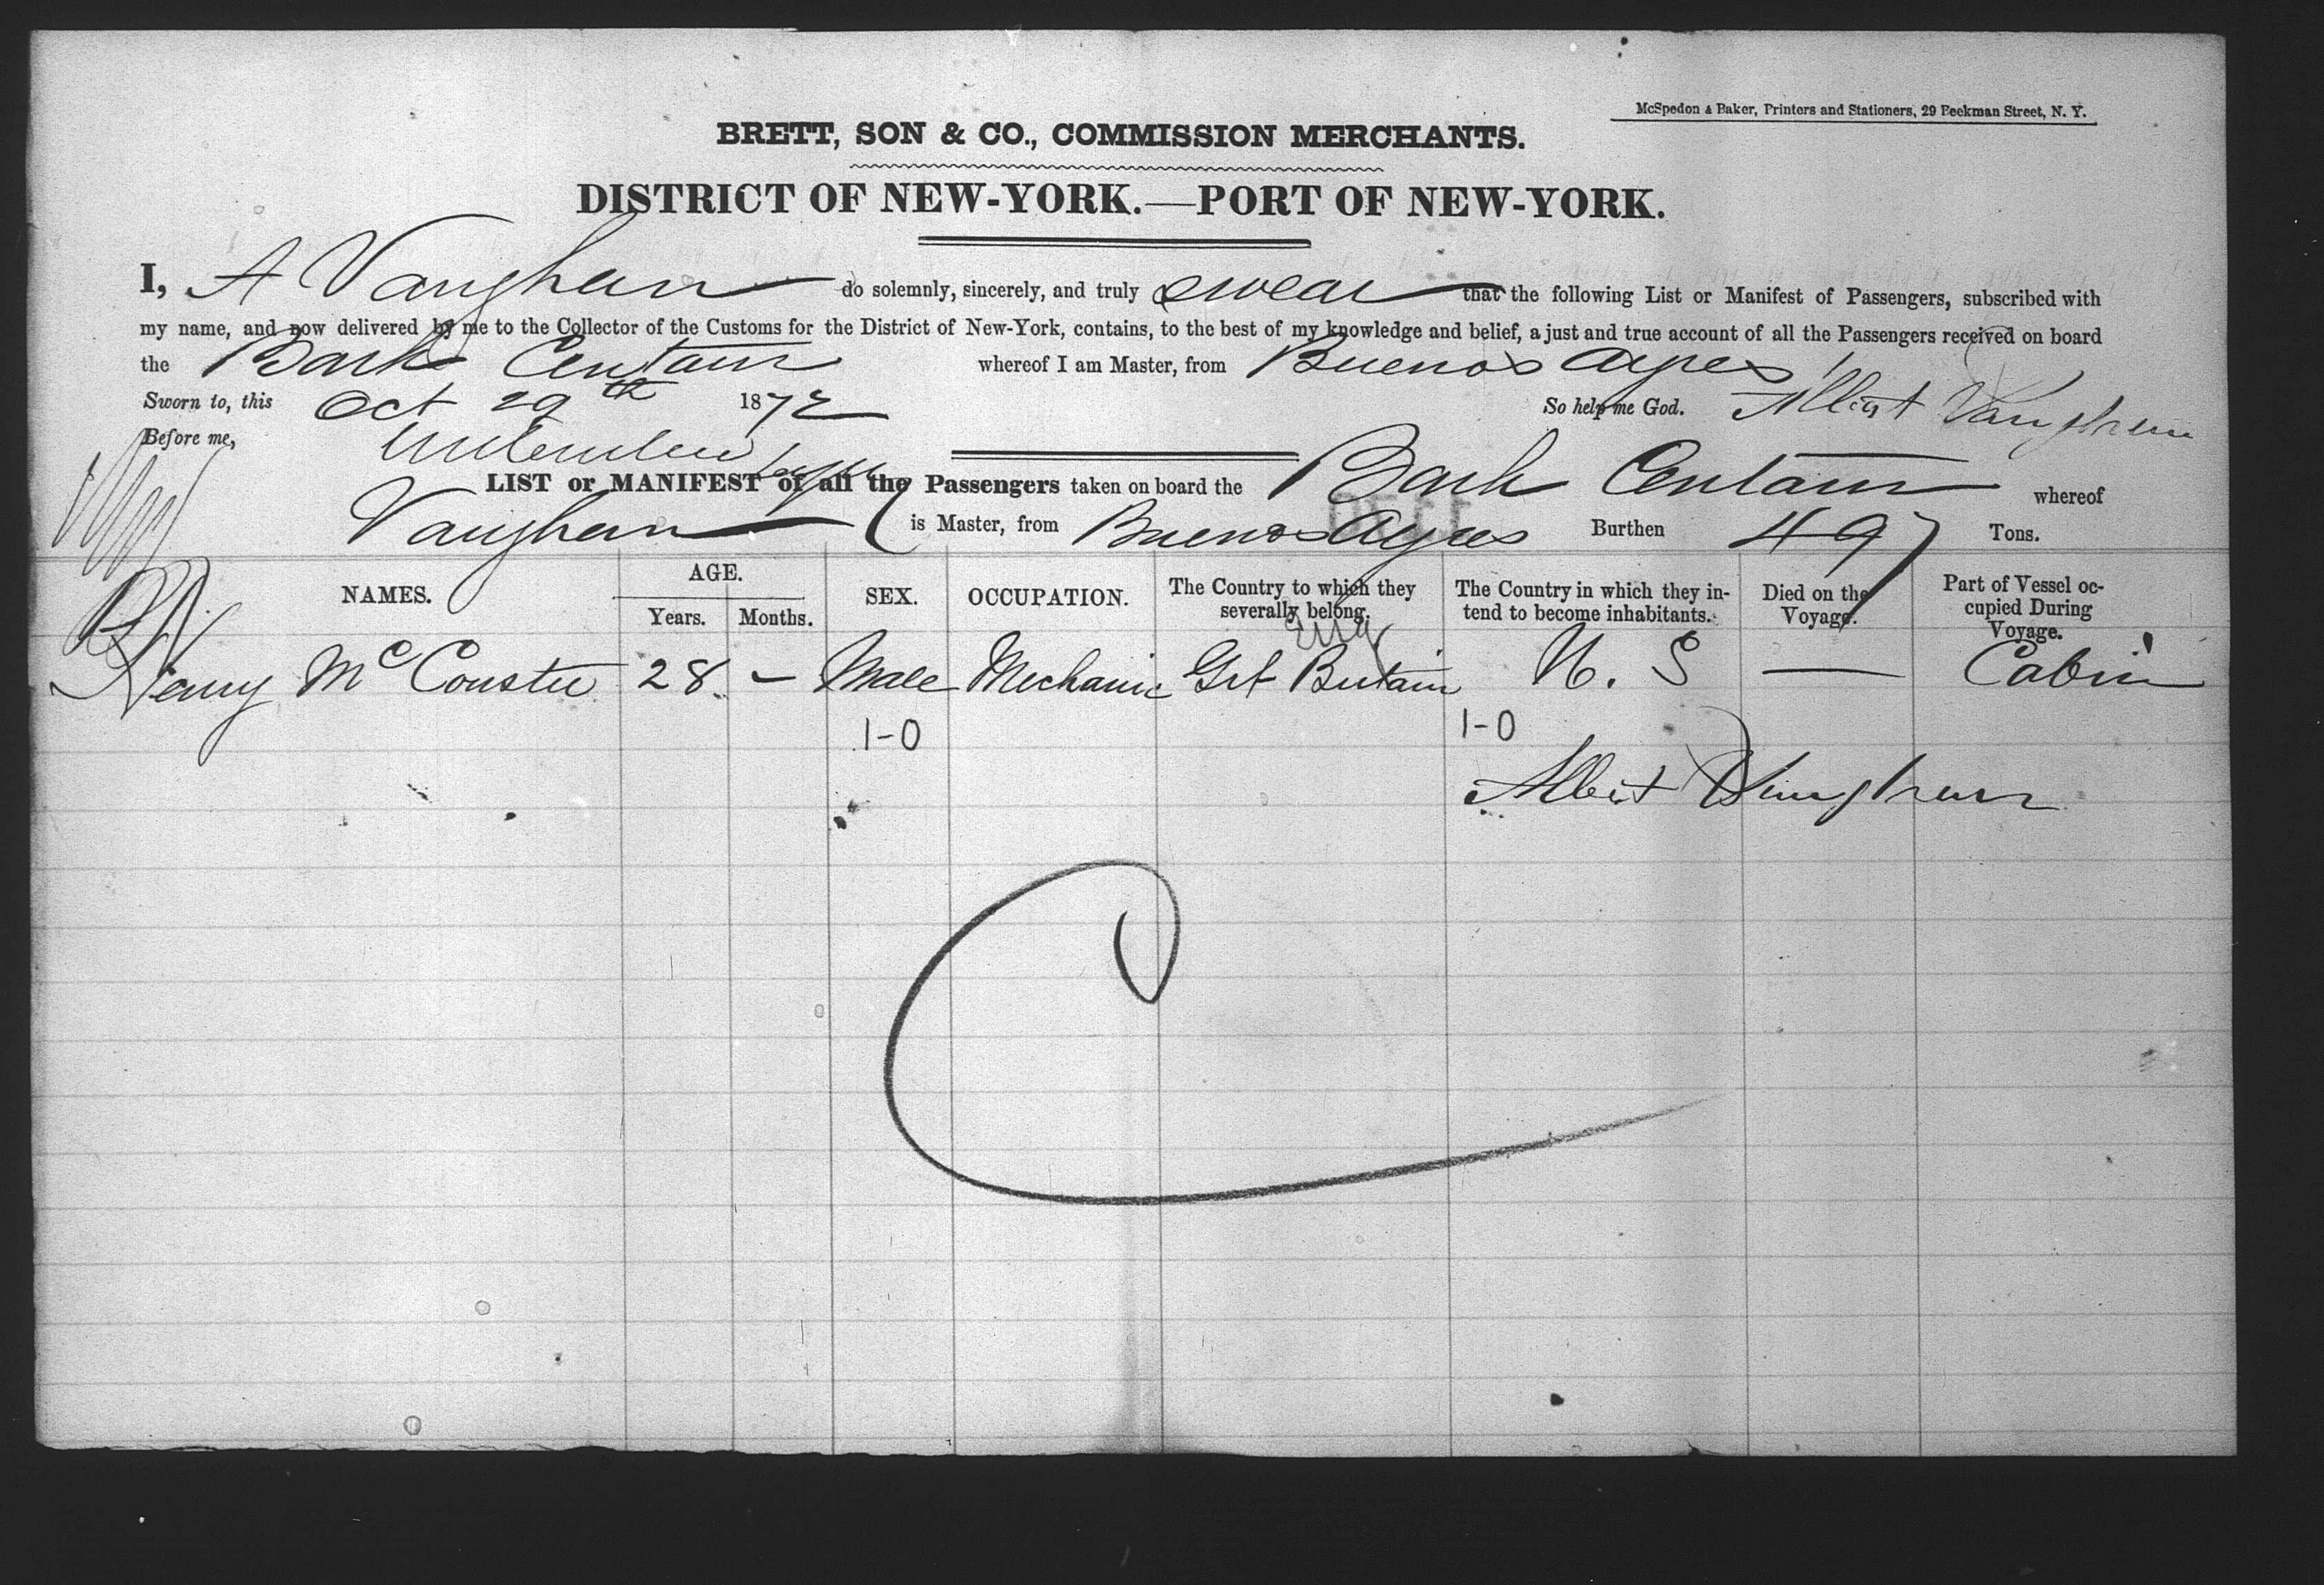 McSpedon & Baker, Printers and Stationers, 29 Beekman Street, N. Y.
BRETT, SON & CO., COMMISSION MERCHANTS.
DISTRICT OF NEW-YORK.—PORT OF NEW-YORK.
I, A Vaughan do solemnly, sincerely, and truly swear that the following List or Manifest of Passengers, subscribed with
my name, and now delivered by me to the Collector of the Customs for the District of New-York, contains, to the best of my knowledge and belief, a just and true account of all the Passengers received on board
the Bark Centaur whereof I am Master, from Buenos Ayres
Sworn to, this Oct 29th 1872 So help me God. Albert Vaughan
Before me,
LIST or MANIFEST of all the Passengers taken on board the Bark Centaur whereof
Vaughan is Master, from Buenos Ayres Burthen 497 Tons.
NAMES. AGE. Years. Months. SEX. OCCUPATION. The Country to which they severally belong. The Country in which they intend to become inhabitants. Died on the Voyage. Part of Vessel occupied During Voyage.
Eng
Henry Mc Coustee 28 - Male Mechanic Grt Britain U. S — Cabin
1-0 1-0
Albert Vaughan
C